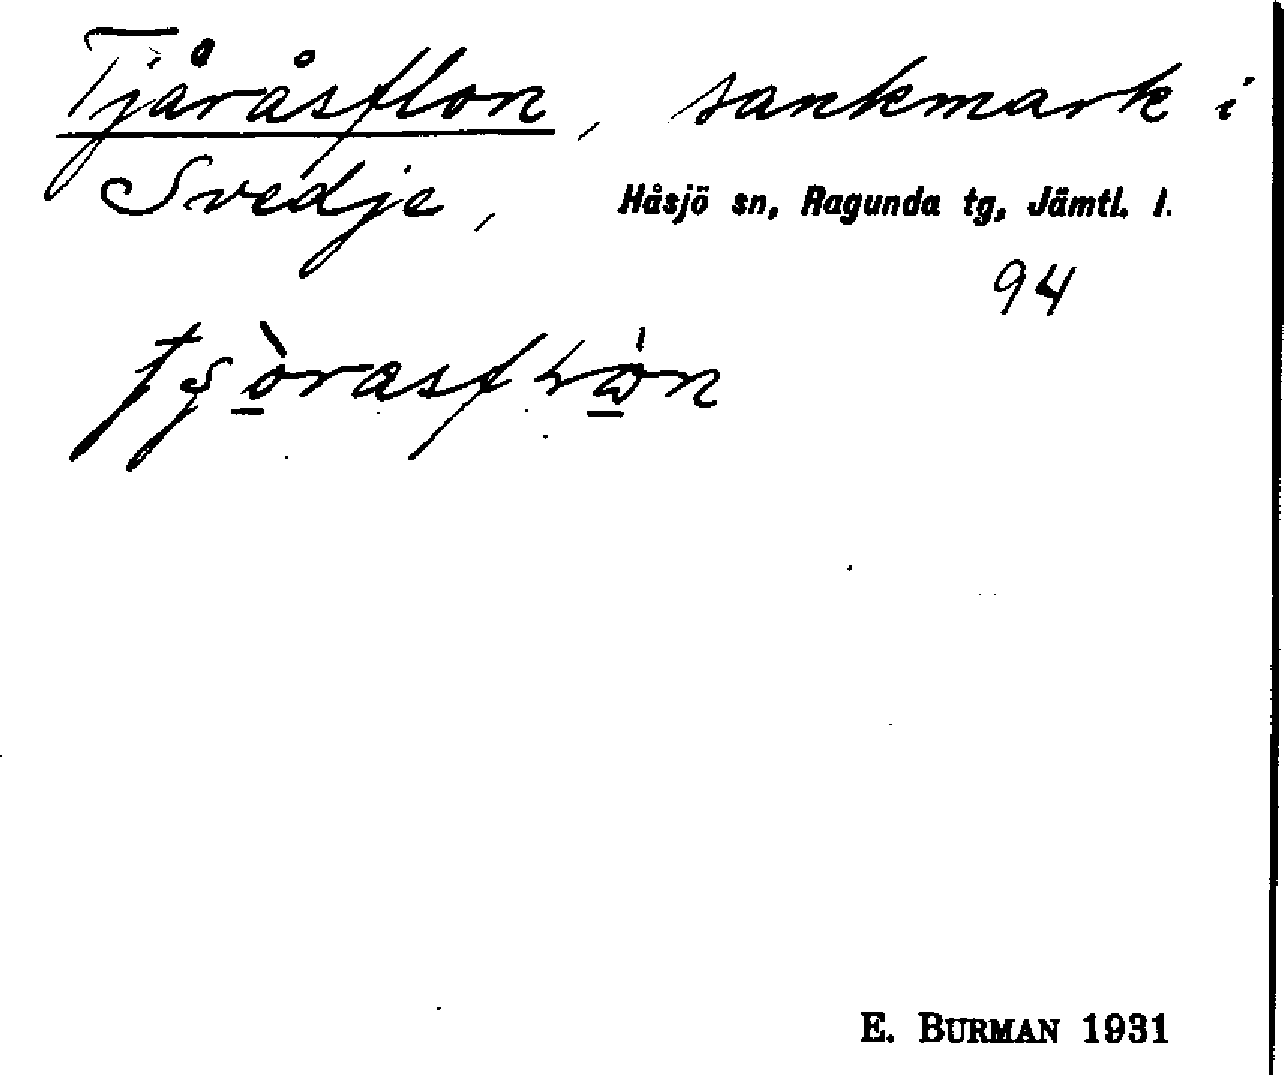 Tjåråsflon, sankmark i
Svedje, Håsjö sn, Ragunda tg, Jämtl. l.
94
E. BURMAN 1931